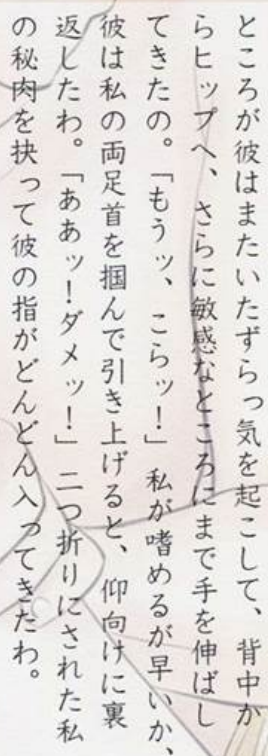 ところが彼はまたいたずらっ気を起こして、背中か
らヒップへ、さらに敏感なところにまで手を伸ばし
てきたの。「もうッ、こらッ!」私が嗜めるが早いか、
彼は私の両足首を掴んで引き上げると、仰向けに裏
返したわ。「ああッ!ダメッ!」二つ折りにされた私
の秘肉を抉って彼の指がどんどん入ってきたわ。